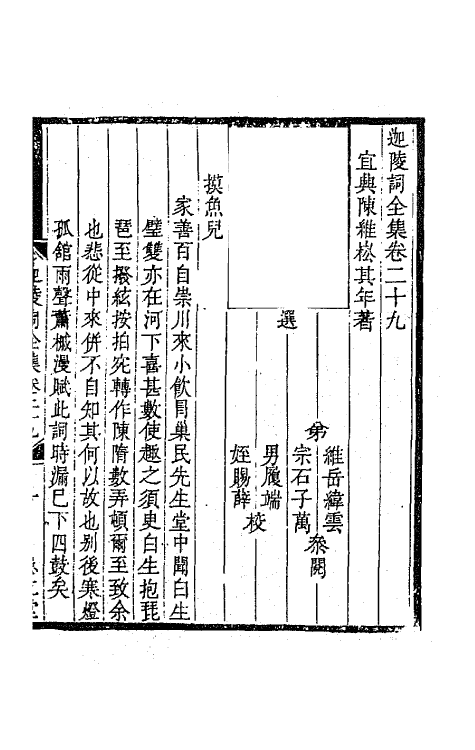 迦陵詞全集卷二十九
宜興陳維崧其年著
選
弟
維岳緯雲
宗石子萬
叅閱
男履端
姪賜薛
校
摸魚兒
家善百自崇川來小飲冒巢民先生堂中聞白生
璧雙亦在河下喜甚數使趣之須臾白生抱琵
琶至撥絃按拍宛轉作陳隋數弄頓爾至致余
也悲從中來併不自知其何以故也别後寒燈
孤館雨聲蕭槭漫賦此詞時漏已下四鼓矣
迦陵詞全集卷二十九
一